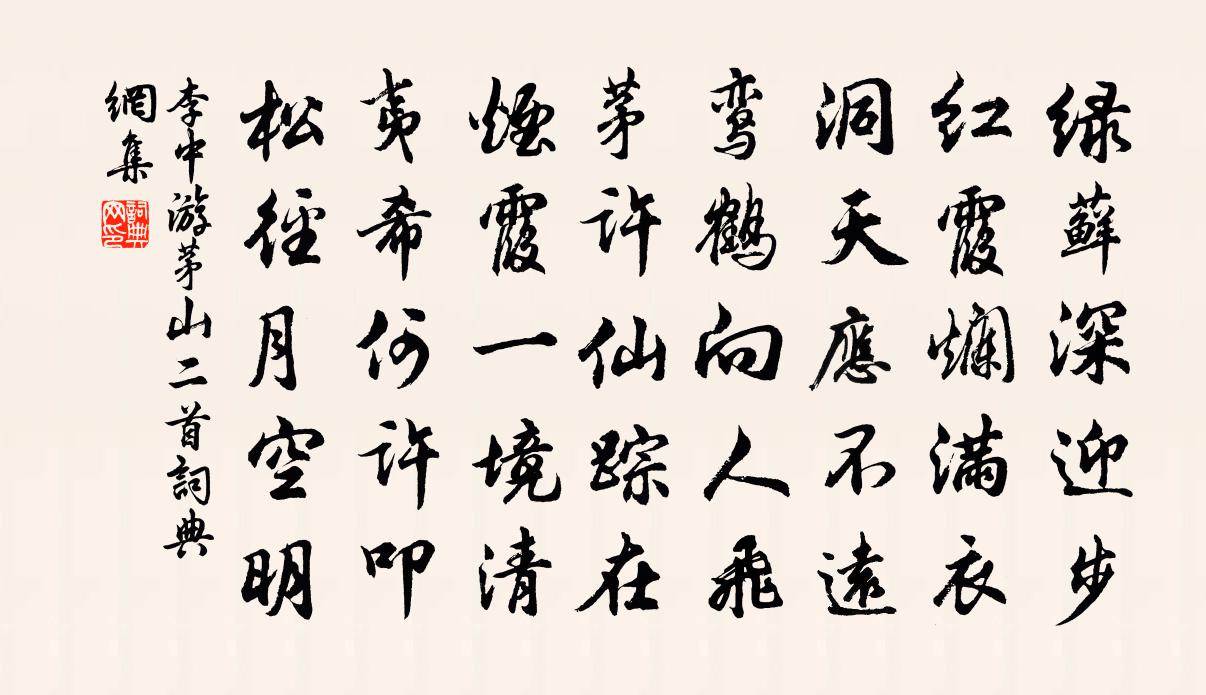 绿藓深迎步
红霞爛满衣
洞天應不遠
鸾鶴向人飛
茅許仙踪在
煙霞一境清
夷希何許叩
松徑月空明
李中游茅山二首詞典
網集
詞典
网印